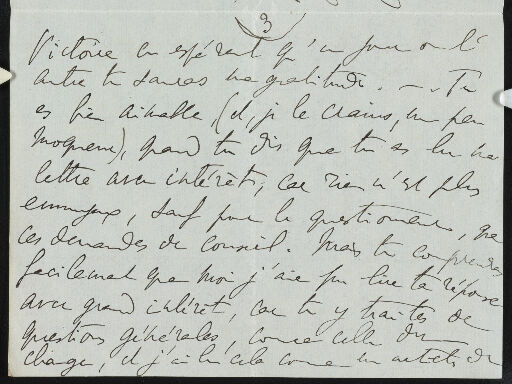 3
Victoire en espérant qu'un jour ou l'
autre tu sauras ma gratitude. — . Tu
es bien aimable, (et, je le crains, un peu
moqueur), quand tu dis que tu as lu ma
lettre avec intérêt, car rien n'est plus
ennuyeux, sauf pour le questionneur, que
ces demandes de conseil. Mais tu comprendras
facilement que moi j'aie pu lire ta réponse
avec grand intérêt, car tu y traites de
questions générales, comme celle du
change, et j'ai lu cela comme un article de